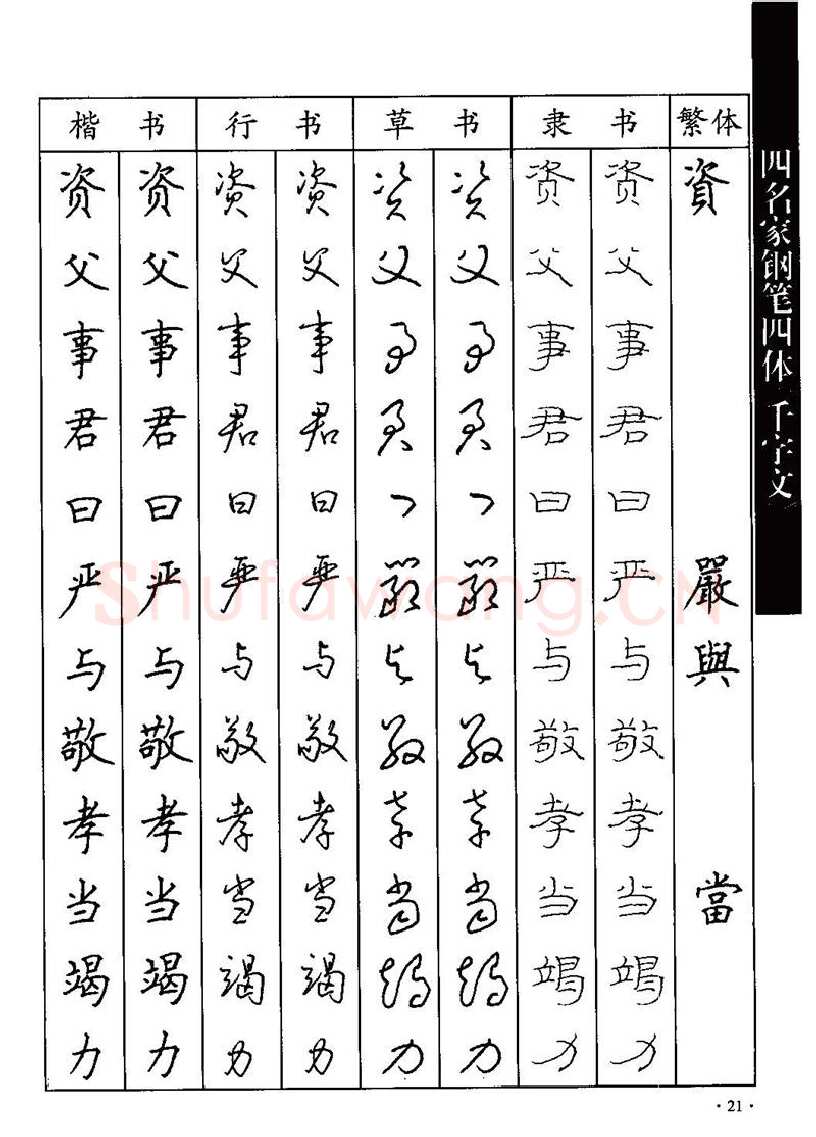 楷书 行书 草书 隶书 繁体
资父事君曰严与敬孝当竭力
资父事君曰严与敬孝当竭力
资父事君曰严与敬孝当竭力
资父事君曰严与敬孝当竭力
资父事君曰严与敬孝当竭力
资父事君曰严与敬孝当竭力
资父事君曰严与敬孝当竭力
资父事君曰严与敬孝当竭力
資嚴與當
四名家钢笔四体 千字文
Shufawang.CN
·21·